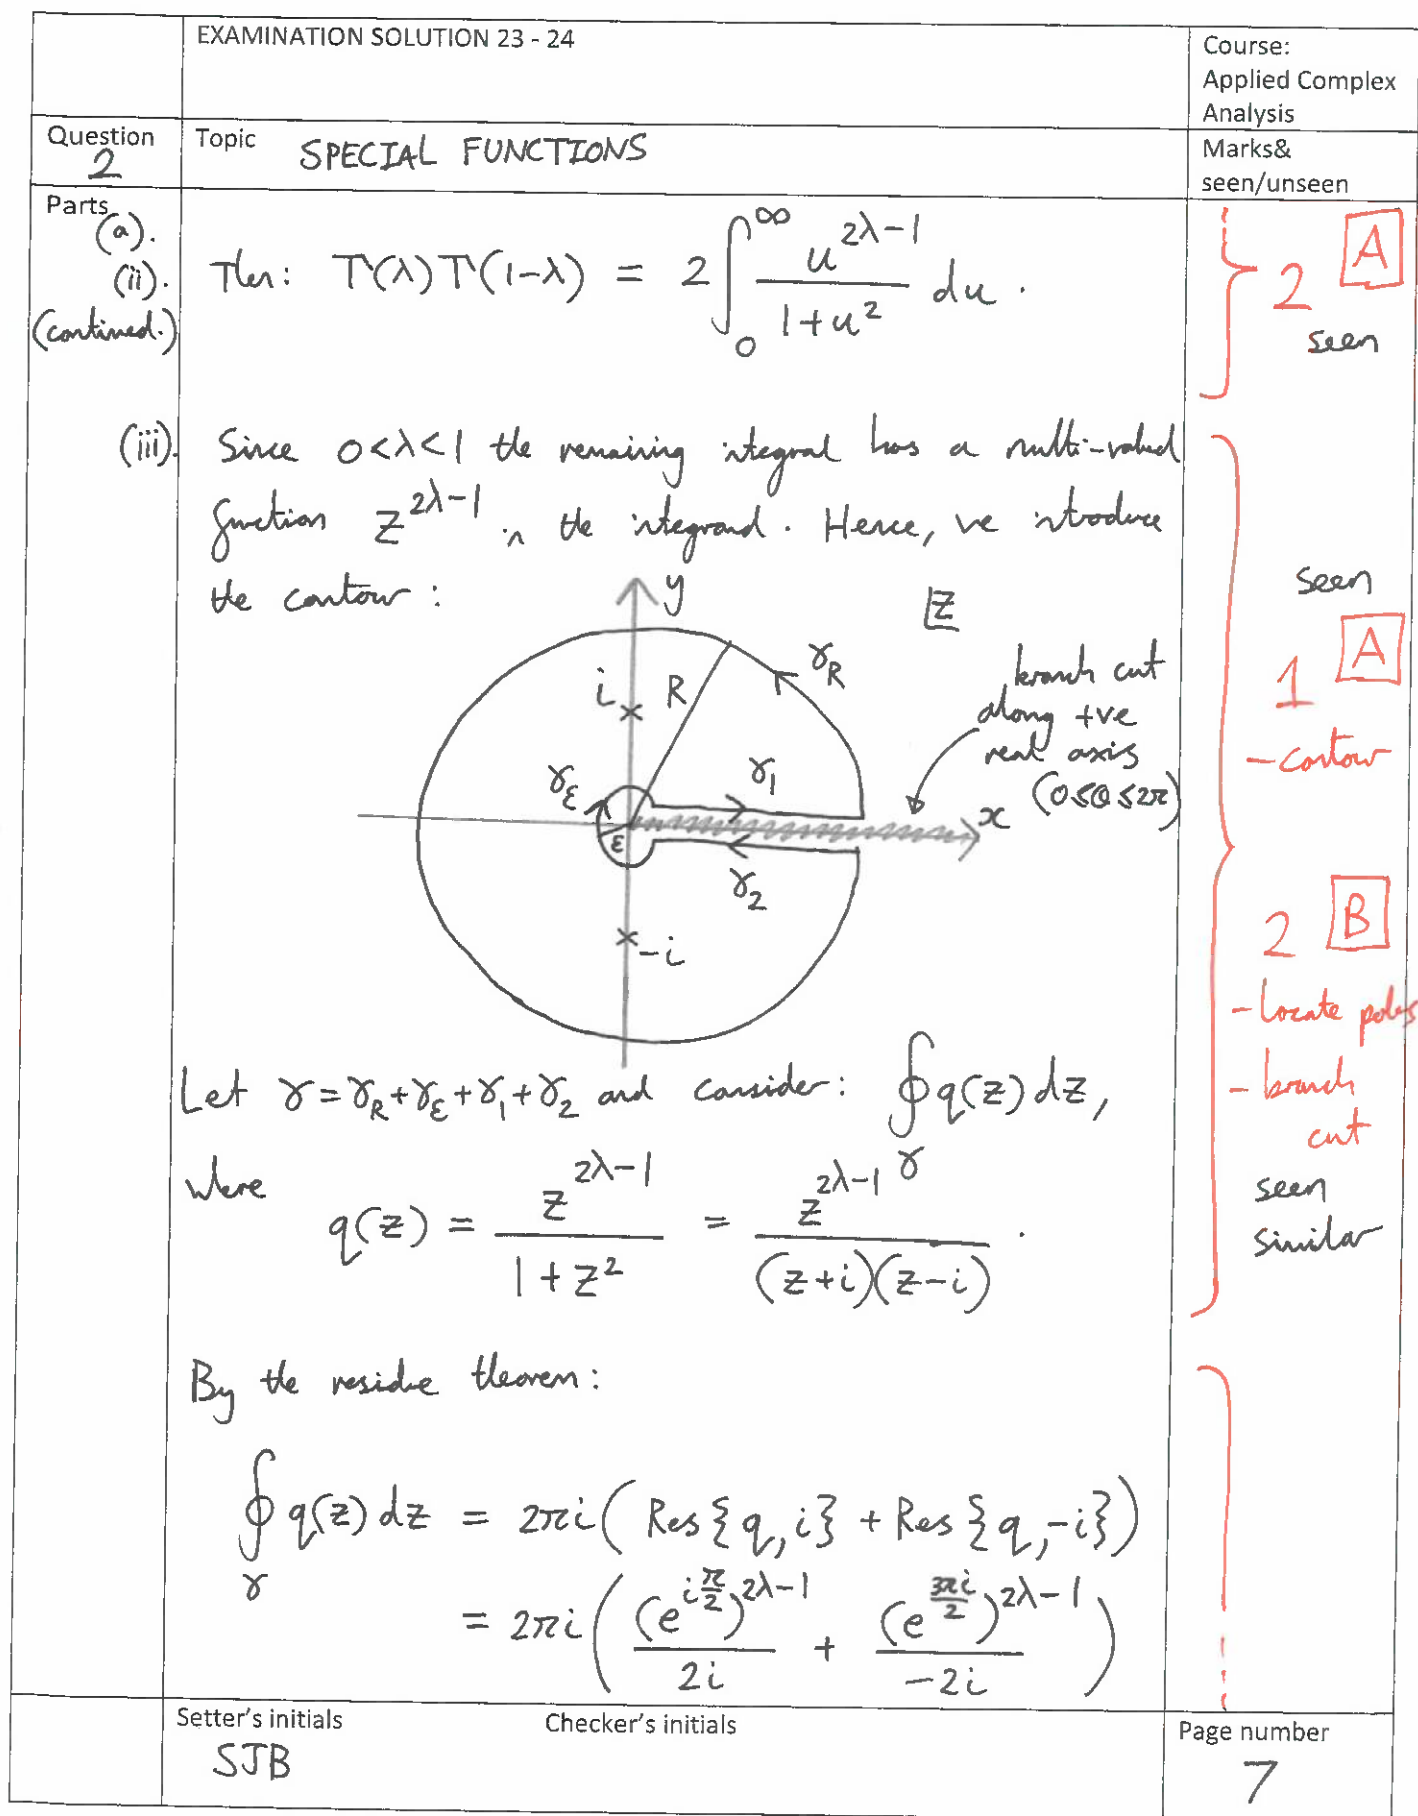 EXAMINATION SOLUTION 23 - 24
Course:
Applied Complex
Analysis
Question
2
Topic SPECIAL FUNCTIONS
Marks&
seen/unseen
Parts
(a).
(ii).
(continued.)
Then: Γ(λ)Γ(1-λ) = 2∫_0^∞ u^{2λ-1}/(1+u^2) du.
2 A
seen
(iii). Since 0<λ<1 the remaining integral has a multi-valued
function z^{2λ-1} in the integrand. Hence, we introduce
the contour:
y
z
i
R
γ_R
branch cut
along +ve
real axis
(0≤θ≤2π)
γ_ε
γ_1
x
ε
γ_2
-i
seen
1 A
- contour
2 B
- locate poles
- branch
cut
seen
similar
Let γ=γ_R+γ_ε+γ_1+γ_2 and consider: ∮_γ q(z)dz,
where
q(z) = z^{2λ-1}/(1+z^2) = z^{2λ-1}/((z+i)(z-i)).
By the residue theorem:
∮_γ q(z)dz = 2πi(Res{q,i} + Res{q,-i})
= 2πi((e^{iπ/2})^{2λ-1}/(2i) + (e^{3πi/2})^{2λ-1}/(-2i))
Setter's initials
SJB
Checker's initials
Page number
7